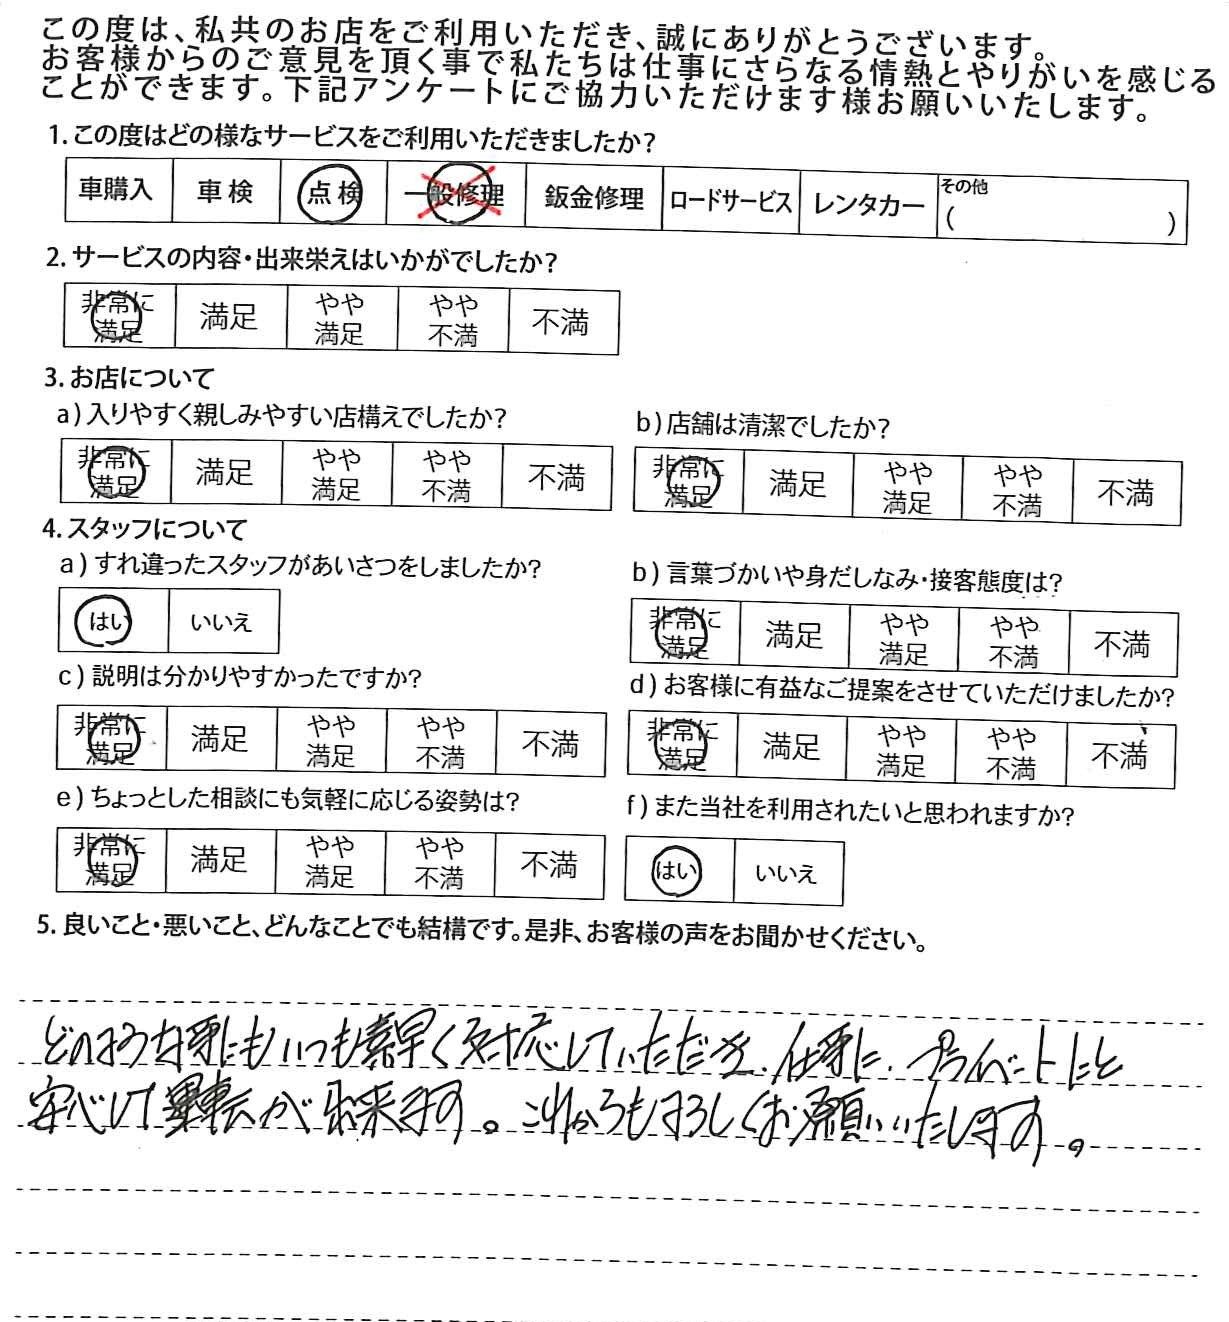 この度は、私共のお店をご利用いただき、誠にありがとうございます。
お客様からのご意見を頂く事で私たちは仕事にさらなる情熱とやりがいを感じる
ことができます。下記アンケートにご協力いただけます様お願いいたします。
1.この度はどの様なサービスをご利用いただきましたか?
車購入 車検 点検 一般修理 鈑金修理 ロードサービス レンタカー その他
( )
2.サービスの内容・出来栄えはいかがでしたか?
非常に満足 満足 やや満足 やや不満 不満
3.お店について
a)入りやすく親しみやすい店構えでしたか?
非常に満足 満足 やや満足 やや不満 不満
b)店舗は清潔でしたか?
非常に満足 満足 やや満足 やや不満 不満
4.スタッフについて
a)すれ違ったスタッフがあいさつをしましたか?
はい いいえ
b)言葉づかいや身だしなみ・接客態度は?
非常に満足 満足 やや満足 やや不満 不満
c)説明は分かりやすかったですか?
非常に満足 満足 やや満足 やや不満 不満
d)お客様に有益なご提案をさせていただけましたか?
非常に満足 満足 やや満足 やや不満 不満
e)ちょっとした相談にも気軽に応じる姿勢は?
非常に満足 満足 やや満足 やや不満 不満
f)また当社を利用されたいと思われますか?
はい いいえ
5.良いこと・悪いこと、どんなことでも結構です。是非、お客様の声をお聞かせください。
どのような事にもいつも素早く対応していただき、仕事に、プライベートにと
安心して運転が出来ます。これからもよろしくお願いいたします。